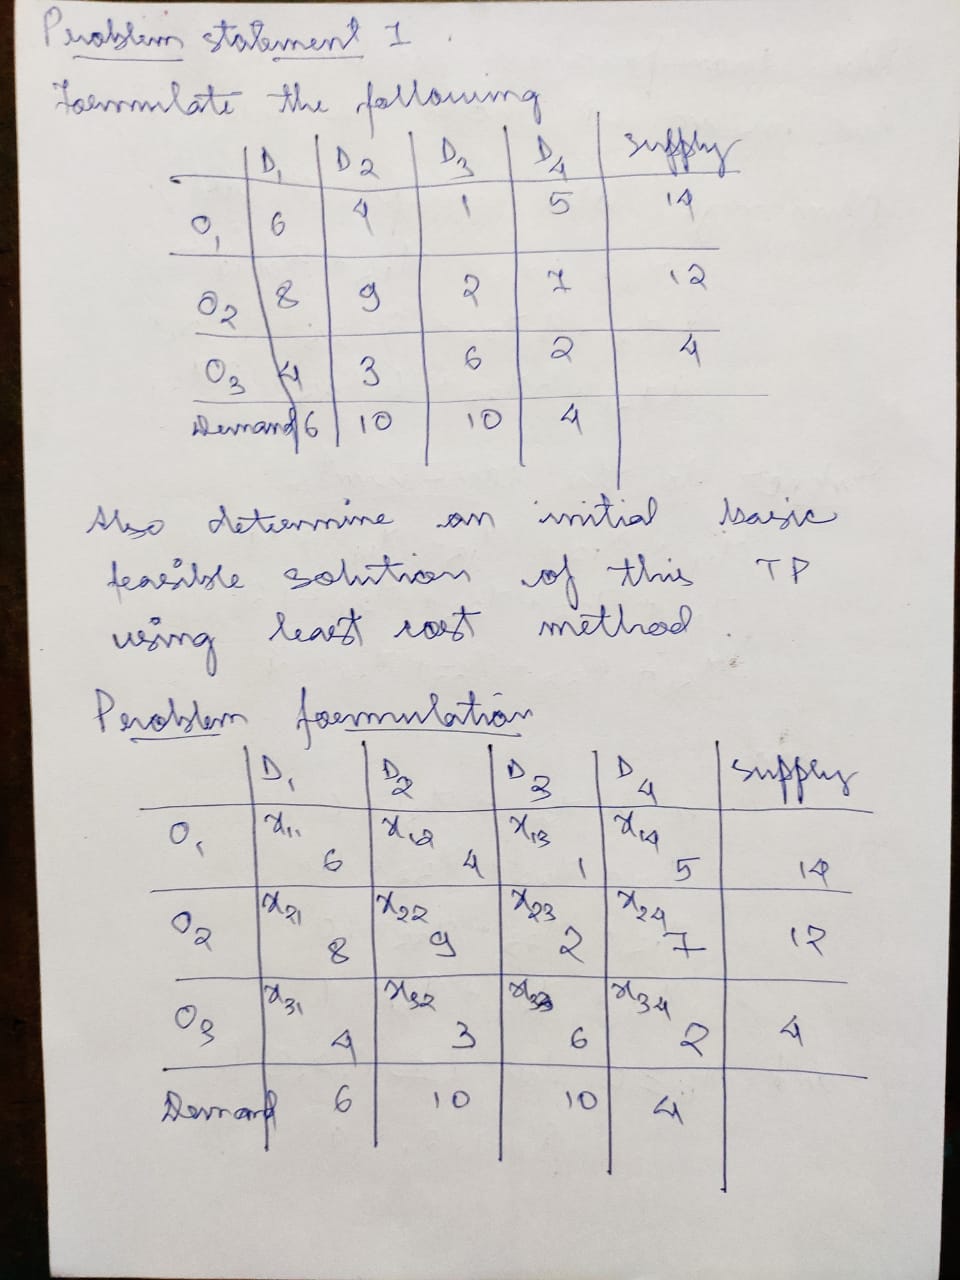 Problem statement 1.
Formulate the following
D1 D2 D3 D4 Supply
O1 6 4 1 5 14
O2 8 9 2 7 12
O3 4 3 6 2 4
Demand 6 10 10 4
Also determine an initial basic
feasible solution of this TP
using least cost method.
Problem formulation
D1 D2 D3 D4 Supply
O1 x11 6 x12 4 x13 1 x14 5 14
O2 x21 8 x22 9 x23 2 x24 7 12
O3 x31 4 x32 3 x33 6 x34 2 4
Demand 6 10 10 4